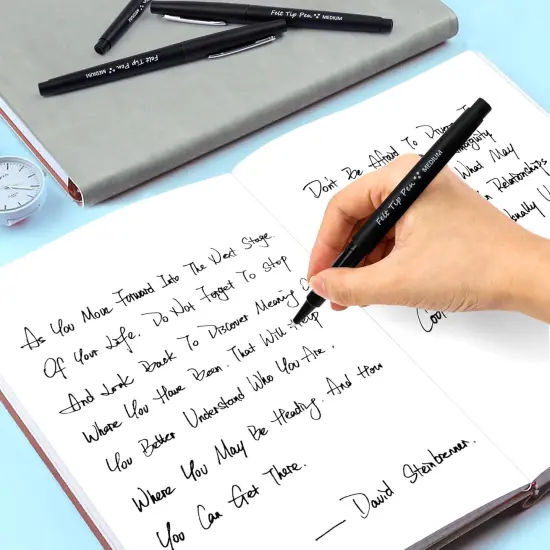 Felt Tip Pen MEDIUM
Felt Tip Pen MEDIUM
MEDIUM
As You Move Forward Into The Next Stage
Of Your Life. Do Not Forget To Stop
And Look Back To Discover Meaning
Where You Have Been. That Will Help
You Better Understand Who You Are,
Where You May Be Heading. And How
You Can Get There.
— David Steinbrenner.
Don't Be Afraid To
What May
Relationships
Felt Tip Pen MEDIUM